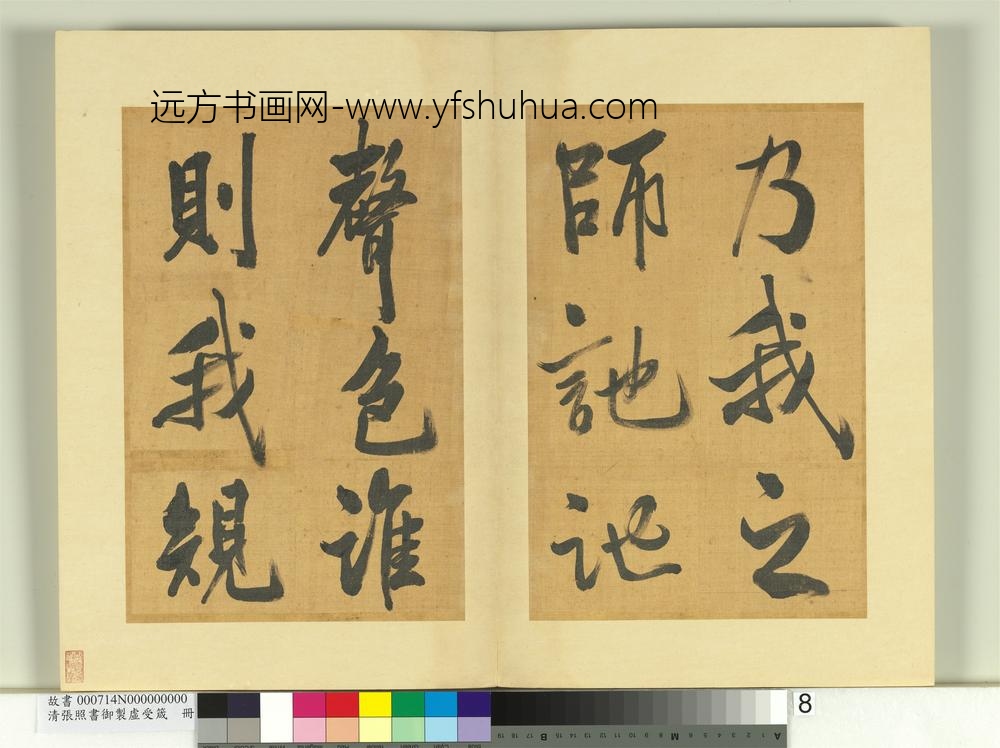 远方书画网-www.yfshuhua.com
乃我之
師訑訑
聲色誰
則我規
故書 000714N000000000
清張照書御製虛受箴 冊
8